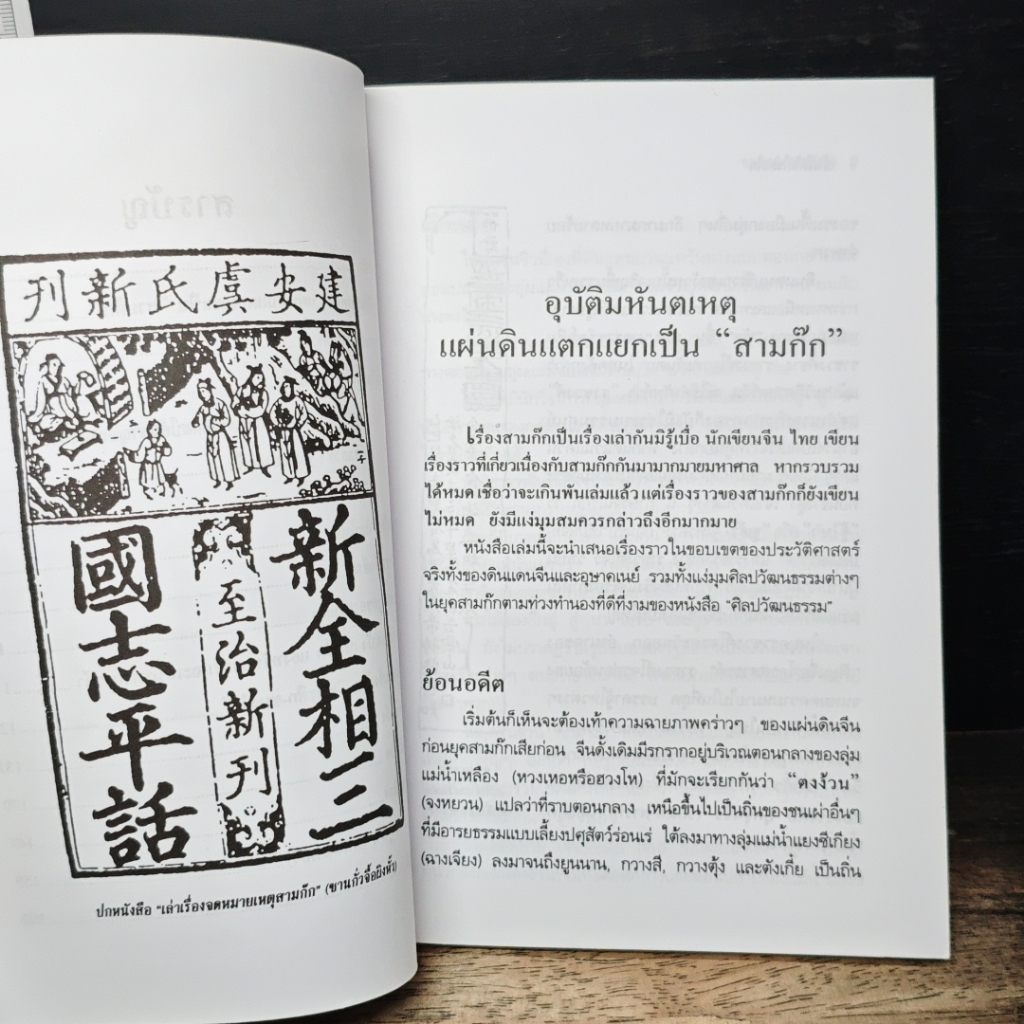 建安虞氏新刊
新全相三
至治新刊
國志平話
ปกหนังสือ "เล่าเรื่องจดหมายเหตุสามก๊ก" (ซานกั๋วจื้อผิงฮั่ว)
อุบัติมหันตเหตุ
แผ่นดินแตกแยกเป็น "สามก๊ก"
เรื่องสามก๊กเป็นเรื่องเล่ากันมิรู้เบื่อ นักเขียนจีน ไทย เขียน
เรื่องราวที่เกี่ยวเนื่องกับสามก๊กกันมามากมายมหาศาล หากรวบรวม
ได้หมด เชื่อว่าจะเกินพันเล่มแล้ว แต่เรื่องราวของสามก๊กก็ยังเขียน
ไม่หมด ยังมีแง่มุมสมควรกล่าวถึงอีกมากมาย
หนังสือเล่มนี้จะนำเสนอเรื่องราวในขอบเขตของประวัติศาสตร์
จริงทั้งของดินแดนจีนและอุษาคเนย์ รวมทั้งแง่มุมศิลปวัฒนธรรมต่างๆ
ในยุคสามก๊กตามท่วงทำนองที่ดีที่งามของหนังสือ "ศิลปวัฒนธรรม"
ย้อนอดีต
เริ่มต้นก็เห็นจะต้องเท้าความฉายภาพคร่าวๆ ของแผ่นดินจีน
ก่อนยุคสามก๊กเสียก่อน จีนดั้งเดิมมีรกรากอยู่บริเวณตอนกลางของลุ่ม
แม่น้ำเหลือง (หวงเหอหรือฮวงโห) ที่มักจะเรียกกันว่า "ตงง้วน"
(จงหยวน) แปลว่าที่ราบตอนกลาง เหนือขึ้นไปเป็นถิ่นของชนเผ่าอื่นๆ
ที่มีอารยธรรมแบบเลี้ยงปศุสัตว์ร่อนเร่ ใต้ลงมาทางลุ่มแม่น้ำแยงซีเกียง
(ฉางเจียง) ลงมาจนถึงยูนนาน, กวางสี, กวางตุ้ง และตังเกี๋ย เป็นถิ่น